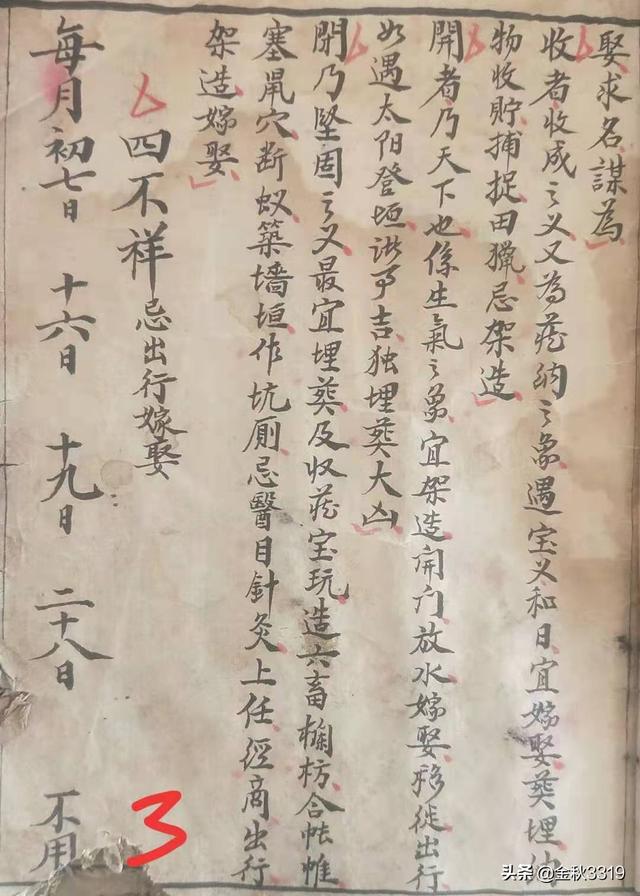 娶求名謀為
收者收成之义又為蔵納之象遇宝义和日宜嫁娶葬埋
物收貯捕捉田獵忌架造
開者乃天下也係生氣之象宜架造開门放水嫁娶移徙出行
如遇太阳登垣諸事吉独埋葬大凶
閉乃堅固之义最宜埋葬及収蔵宝玩造六畜欄枋合帐帷
塞鼡穴断蚁築墙垣作坑厠忌醫目針灸上任經商出行
架造嫁娶
四不祥 忌出行嫁娶
每月初七日 十六日 十九日 二十八日 不用
3
头条 @金秋3319